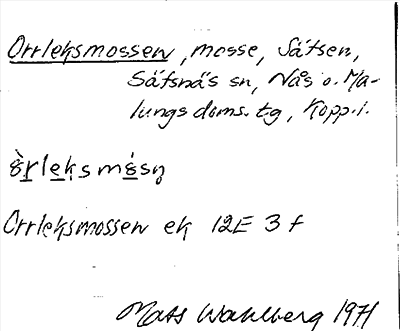 Orrleksmossen, mosse, Säfsen,
Säfsnäs sn, Nås o. Ma-
lungs doms. tg, Kopp. l.
Orrleksmossen ek 12E 3 f
Mats Wahlberg 1971